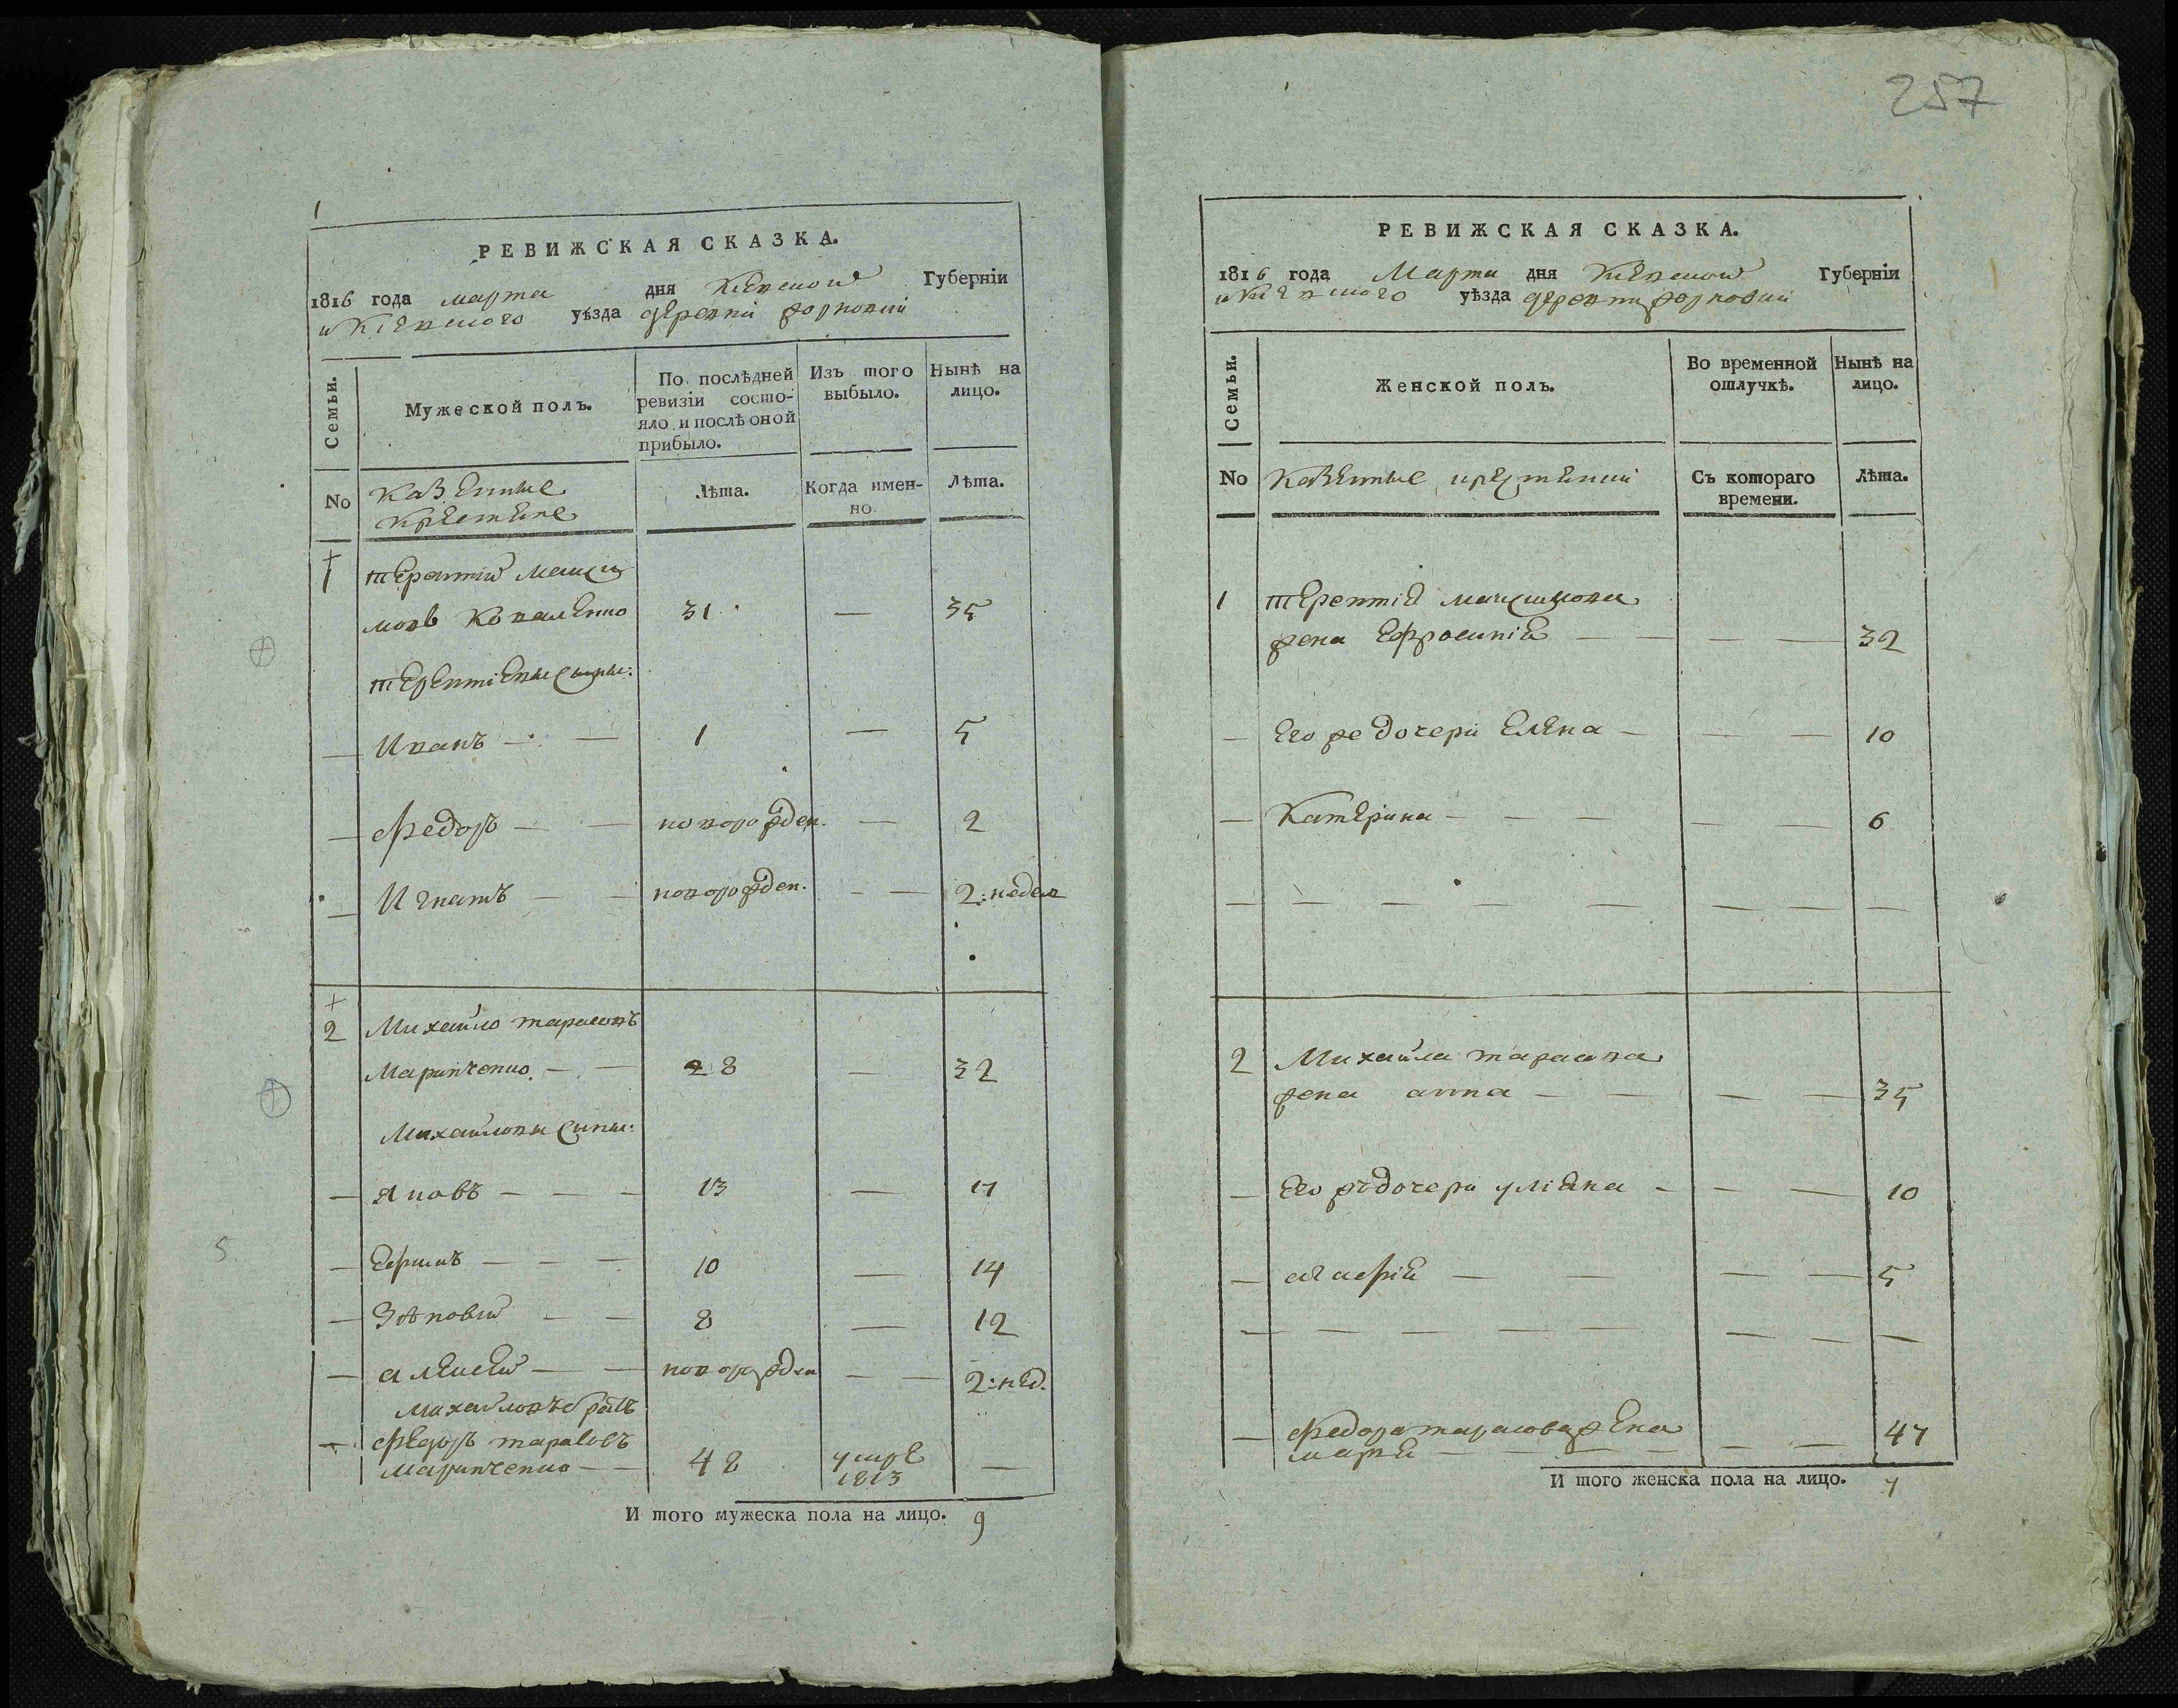 257
1
РЕВИЖСКАЯ СКАЗКА.
1816 года марта дня Киевской Губерніи
и Киевского уѣзда деревни
Семьи.
Мужеской полъ.
По послѣдней
ревизіи состо-
яло и послѣ оной
прибыло.
Изъ того
выбыло.
Нынѣ на
лицо.
No
Казенные
крестяне
Лѣта.
Когда имен-
но
Лѣта.
1 терентий макси
мовъ Коваленко 31 — 35
терентіевы сыны:
— Иванъ — — 1 — 5
— Федоръ — — новорожден. — 2
— Игнатъ — — новорожден. — — 2: недел
2 Михайло тарасовъ
Маринченко — — 28 — 32
Михайловы сины:
— Яковъ — — — 13 — 17
— Ефимъ — — — 10 — 14
— Зѣновій — — 8 — 12
— алексей — — новорожден — — 2: нед.
Михайловъ братъ
— федоръ тарасовъ
Маринченко — — 48 умре 1813 —
И того мужеска пола на лицо. 9
5
РЕВИЖСКАЯ СКАЗКА.
1816 года Марта дня Киевской Губерніи
и Киевского уѣзда деревни
Семьи.
Женской полъ.
Во временной
отлучкѣ.
Нынѣ на
лицо.
No
Казенные крестянки
Съ котораго
времени.
Лѣта.
1 терентія максимова
жена Ефросинія — — — — 32
— Его же дочери Елена — — — 10
— Катерина — — — — 6
— — — — — — — —
2 Михайла тарасова
жена анна — — — — 35
— Его жъ дочери уліяна — — — 10
— агафія — — — — 5
— — — — — — — —
— Федора тарасова жена
марья — — — — 47
И того женска пола на лицо. 7